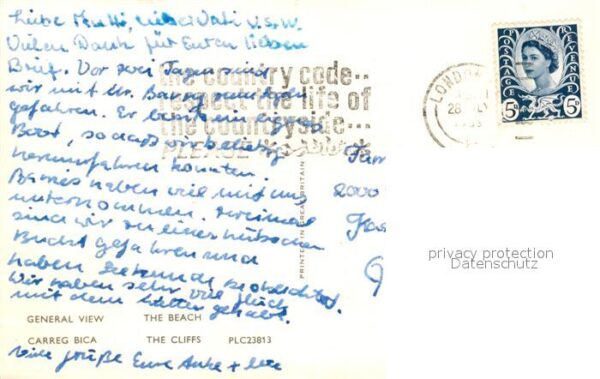 Liebe Mutti, lieber Vati u.s.w.
Vielen Dank für Euren lieben
Brief. Vor zwei Tagen sind
wir mit Mr.
gefahren. Er
Boot, sodass wir beliebig
herumfahren konnten.
haben viel mit uns
unternommen. Zweimal
sind wir zu einer hübschen
Bucht gefahren und
haben Seehunde beobachtet.
Wir haben sehr viel Glück
mit dem Wetter gehabt.
Viele Grüße Eure Anke +
the country code..
respect the life of
the countryside...
PLEASE
LONDON
5D
5D
2000
PRINTED IN GREAT BRITAIN
privacy protection
Datenschutz
GENERAL VIEW THE BEACH
CARREG BICA THE CLIFFS PLC23813